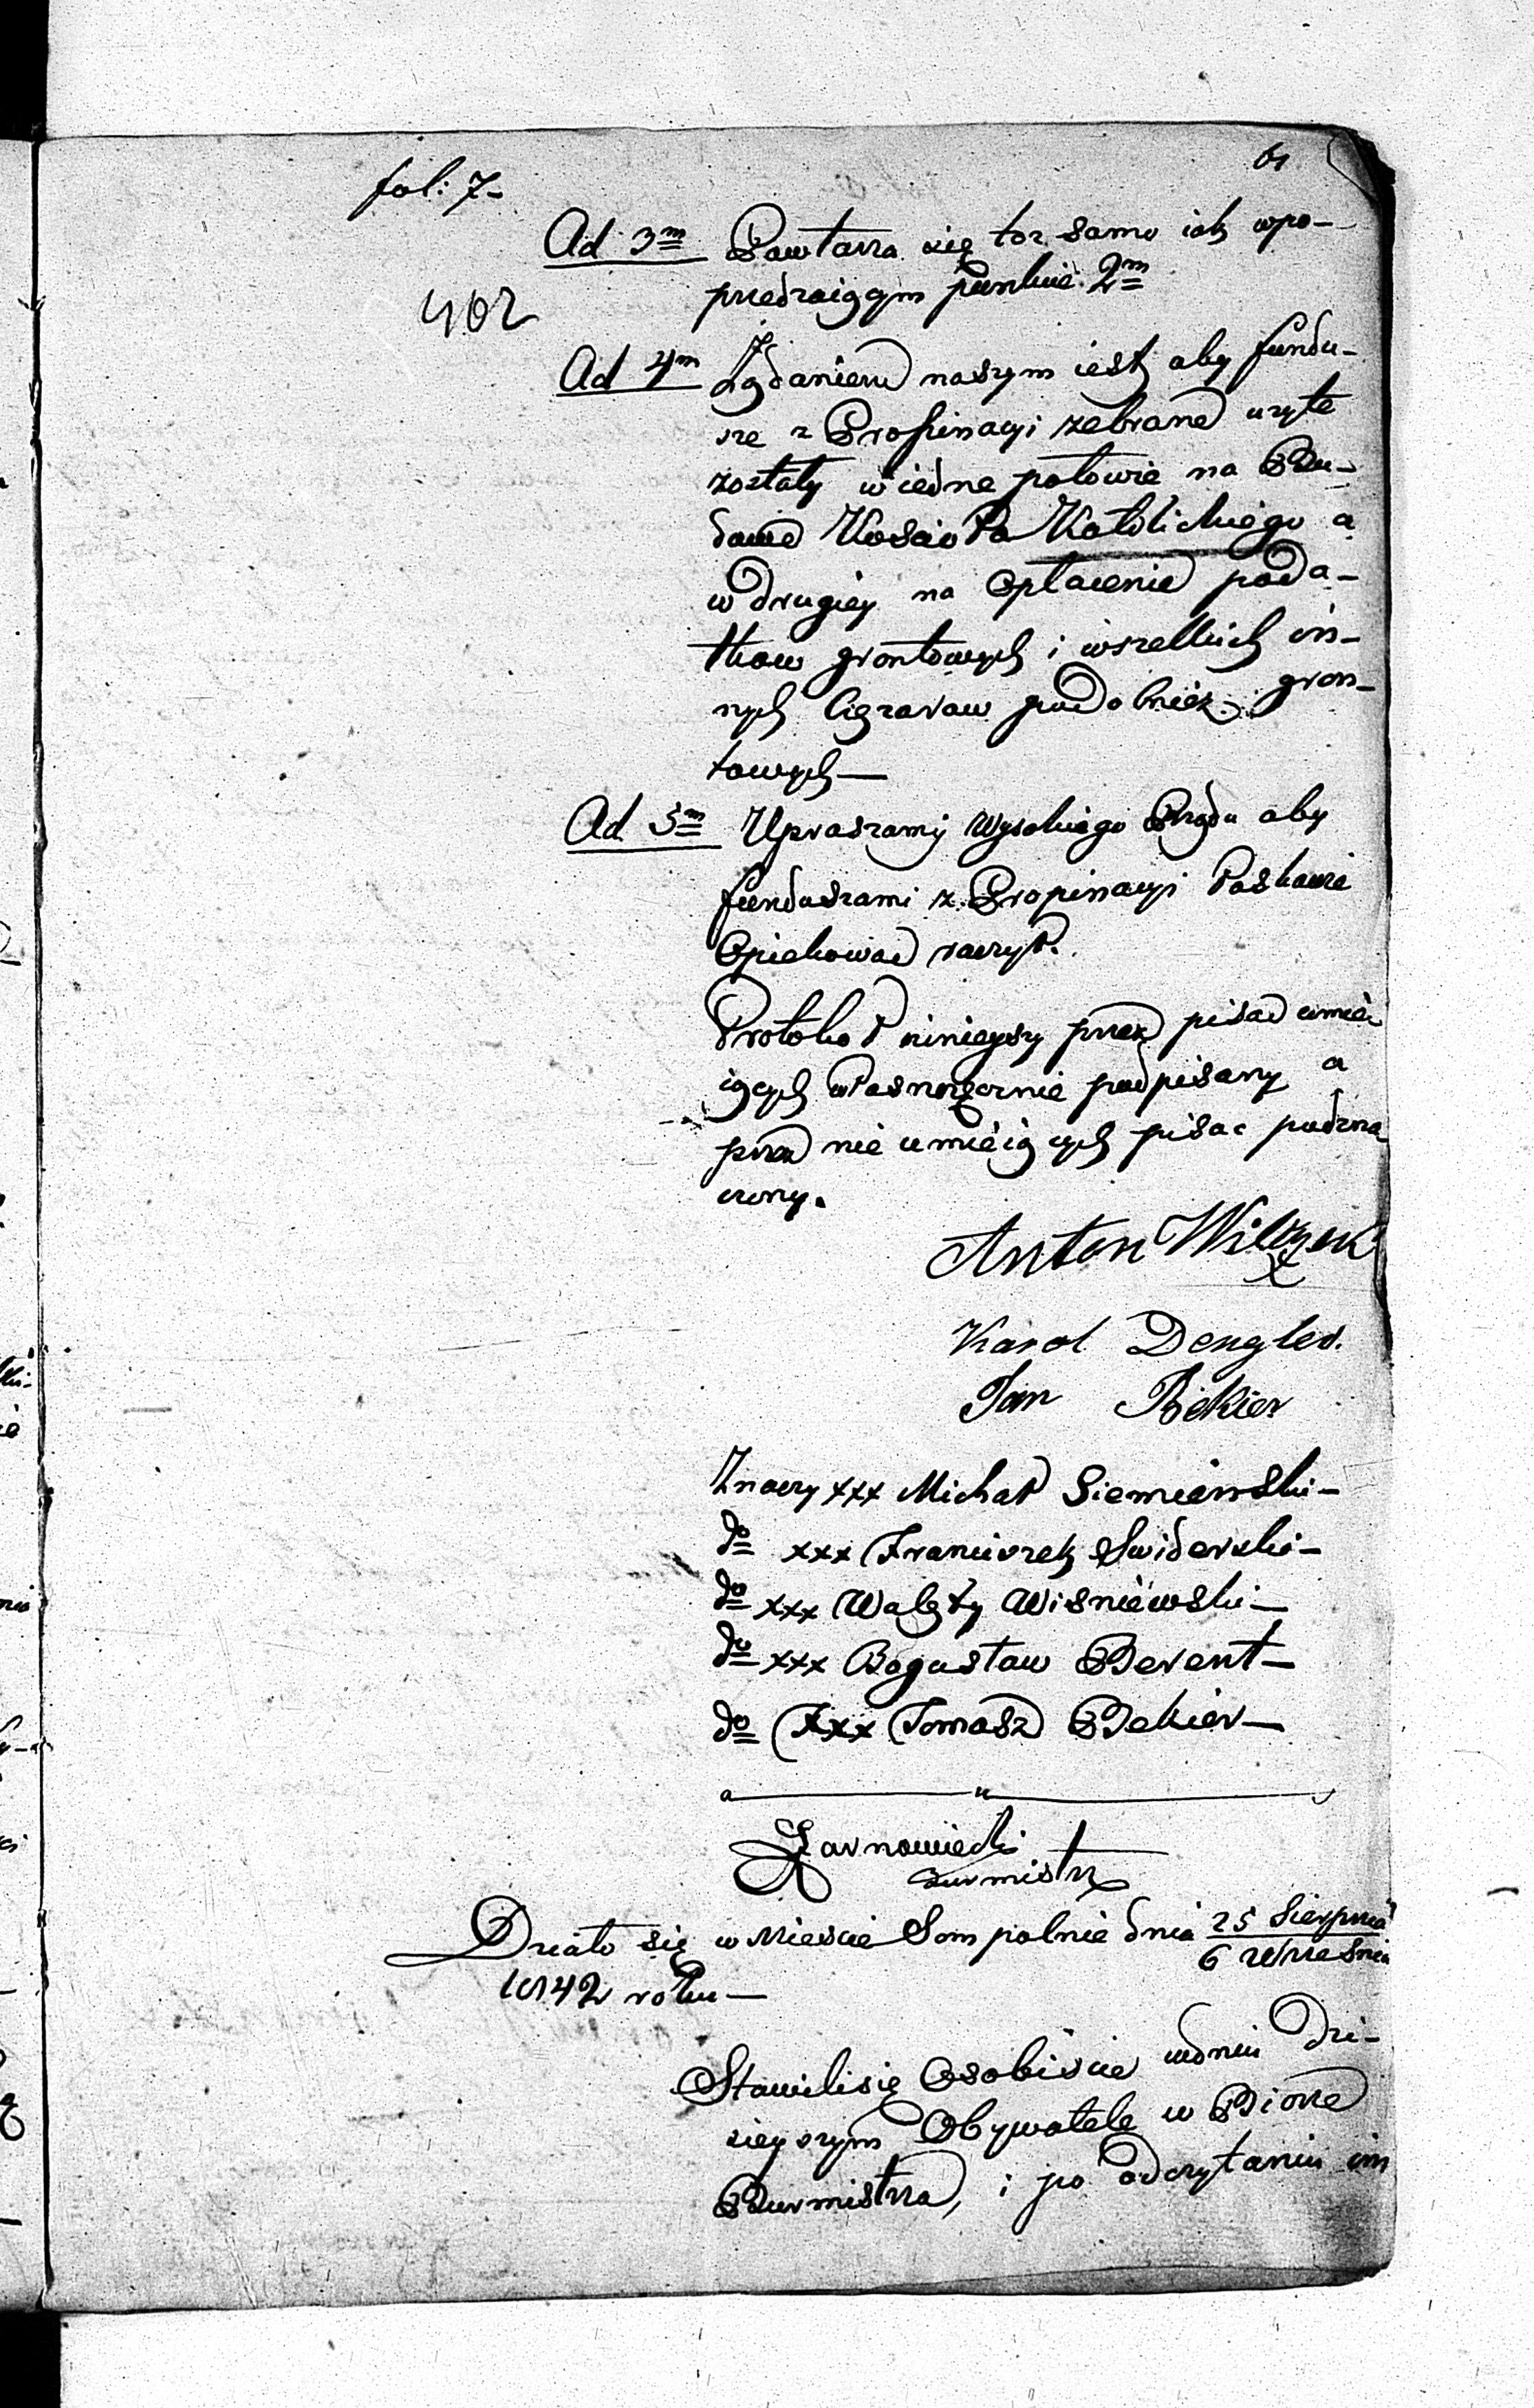 61
fol: 7-
Ad 3m Powtarza się toż samo iak wpo-
przedzaiącym punkcie 2m
402
Ad 4m Żądaniem naszym iest aby fundu-
sze z Propinacyi zebrane użyte
zostały w iedne połowie na Bu-
dowe Kościoła Katolickiego a
w drugiey na Opłacenie poda-
tkow grontowych i wszelkich in-
nych Ciężarow podobnież gron-
towych—
Ad 5m Upraszamy Wysokiego Rządu aby
funduszami z Propinacyi Łaskawie
Opiekować raczył.
Protokoł ninieyszy przez pisać umie
iących własnoręcznie podpisany a
przez nie umieiących pisać podzna
czony.
Anton Wilczek
Karol Dengler.
Jan Bekier
Znaczy xxx Michał Siemieński—
do xxx Franciszek Swiderski—
do xxx Walęty Wisniewski—
do xxx Bogusław Berent—
do xxx Tomasz Bekier—
Żarnowiecki
Burmistrz
Działo się w Mieście Sompolnie dnia 25 Sierpnia
6 Wrzesnia
1842 roku—
Stawili się Osobiście wdniu Dzi-
sieyszym Obywatele w Biorze
Burmistrza, i po odczytaniu im